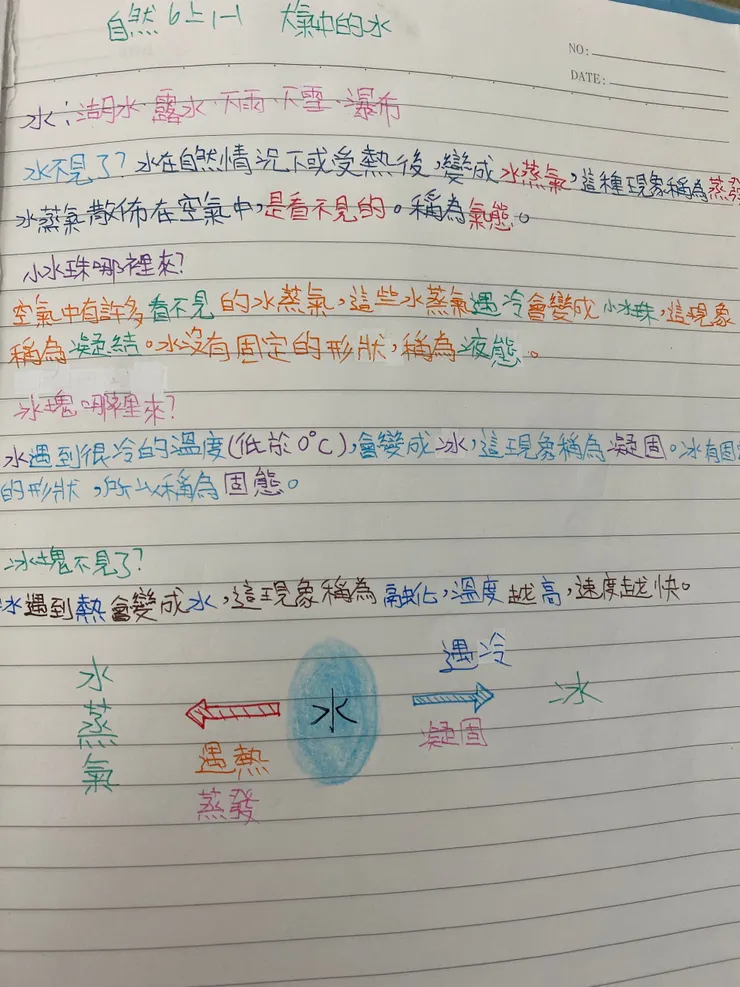 自然 6上1-1 大氣中的水
NO:
DATE:
水:湖水、露水、下雨、下雪、瀑布
水不見了?水在自然情況下或受熱後,變成水蒸氣,這種現象稱為蒸發
水蒸氣散佈在空氣中,是看不見的。稱為氣態。
小水珠哪裡來?
空氣中有許多看不見的水蒸氣,這些水蒸氣遇冷會變成小水珠,這現象
稱為凝結。水沒有固定的形狀,稱為液態。
冰塊哪裡來?
水遇到很冷的溫度(低於0°C),會變成冰,這現象稱為凝固。冰有固定
的形狀,所以稱為固態。
冰塊不見了?
冰遇到熱會變成水,這現象稱為融化,溫度越高,速度越快。
水蒸氣
遇熱
蒸發
水
遇冷
凝固
冰